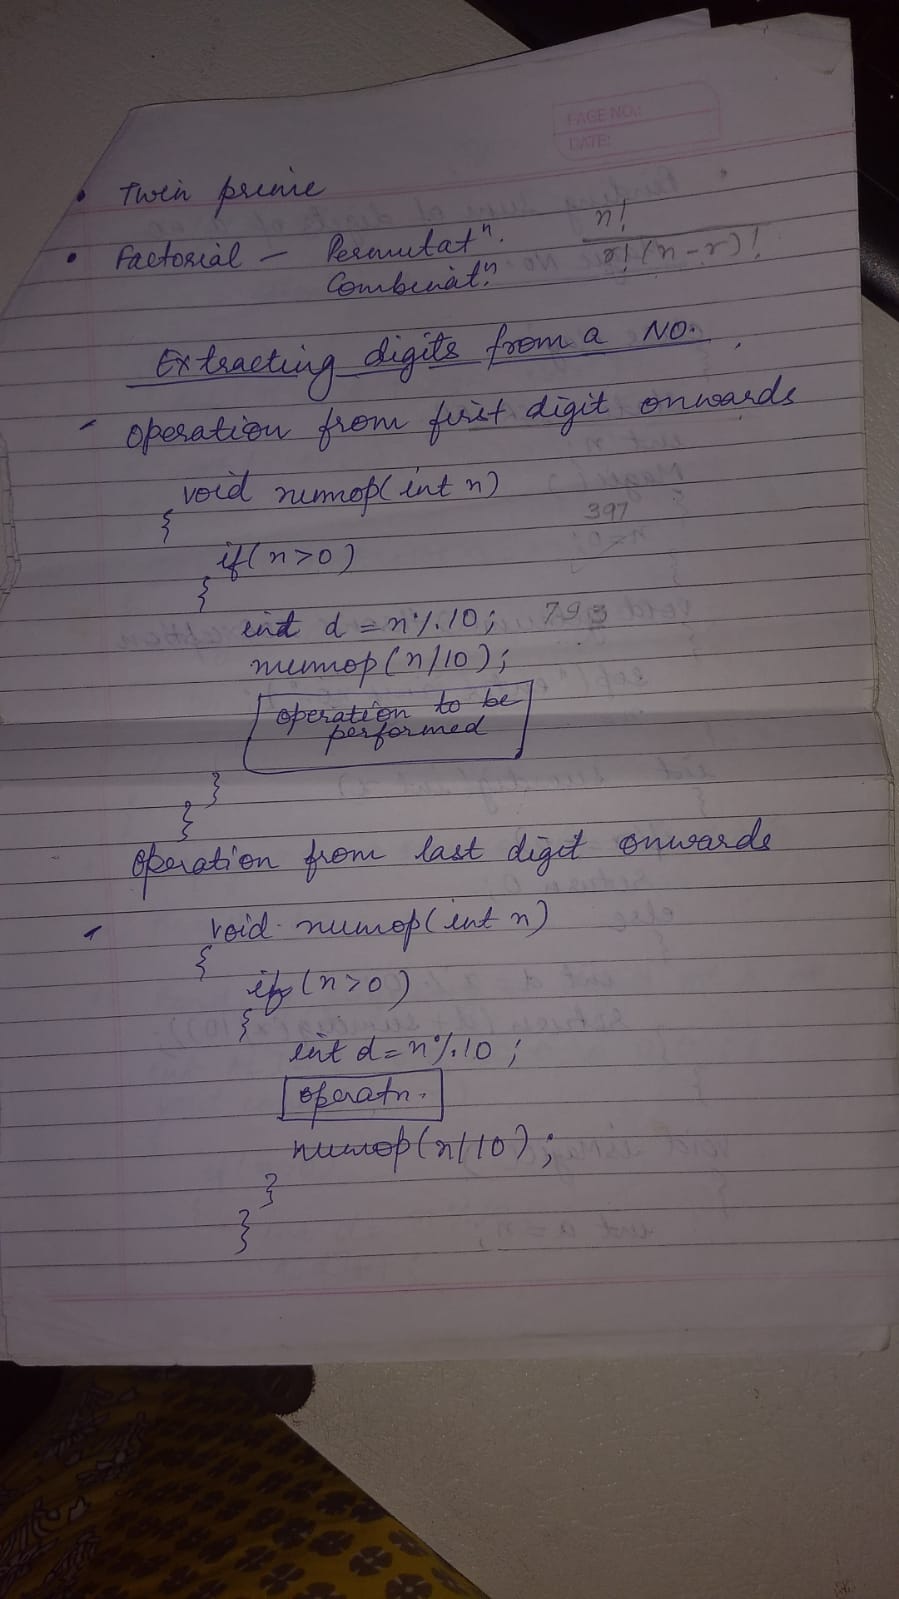 PAGE NO.:
DATE:
• Twin prime
• Factorial — Permutatⁿ. n!
Combinatⁿ. r!(n-r)!
Extracting digits from a No.
- operation from first digit onwards
void numop(int n)
{ 397
if(n>0)
{
int d = n%10; 793
numop(n/10);
operation to be
performed
}
}
operation from last digit onwards
- void numop(int n)
{
if(n>0)
{
int d=n%10;
operatn.
numop(n/10);
}
}